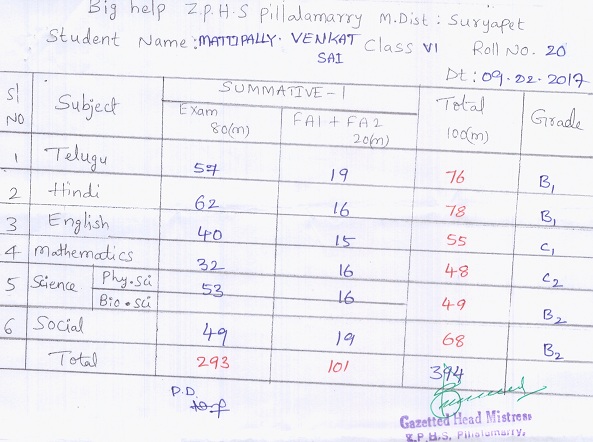 Big help Z.P.H.S pillalamarry M.Dist : Suryapet
Student Name : MATTIPALLY. VENKAT SAI Class VI Roll NO. 20
Dt : 09-02-2017
Sl NO Subject SUMMATIVE-I Total 100(m) Grade
Exam 80(m) FA1 + FA2 20(m)
1 Telugu 57 19 76 B1
2 Hindi 62 16 78 B1
3 English 40 15 55 C1
4 Mathematics 32 16 48 C2
5 Science Phy.sci Bio.sci 53 16 49 B2
6 Social 49 19 68 B2
Total 293 101 394
P.D.
Gazetted Head Mistress
Z.P.H.S. Pillalamarry.